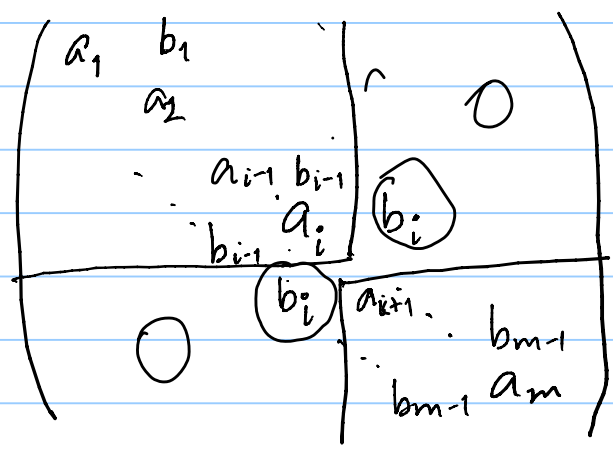 a₁ b₁
a₂ 0
aᵢ₋₁ bᵢ₋₁
aᵢ bᵢ
bᵢ₋₁
bᵢ aᵢ₊₁
0 bₘ₋₁
bₘ₋₁ aₘ